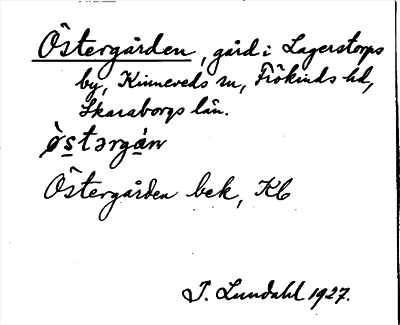 Östergården, gård i Lagerstorps
by, Kinneveds sn, Frökinds hd,
Skaraborgs län.
ö̀stərgán
Östergården bek, Kb
I. Lundahl 1927.